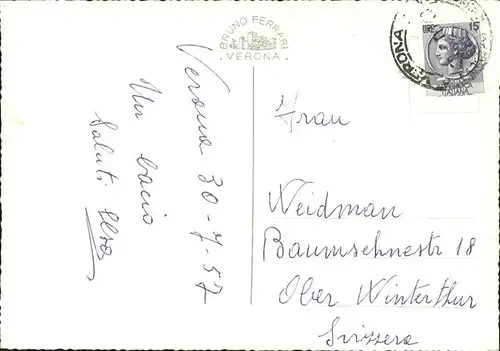 BRUNO FERRARI
. VERONA .
LIRE 15
ITALIANA
VERONA
Verona 30-7-57
Un bacio
Saluti Elsa
Frau
Weidman
Baumschnestr 18
Ober Winterthur
Svizzera